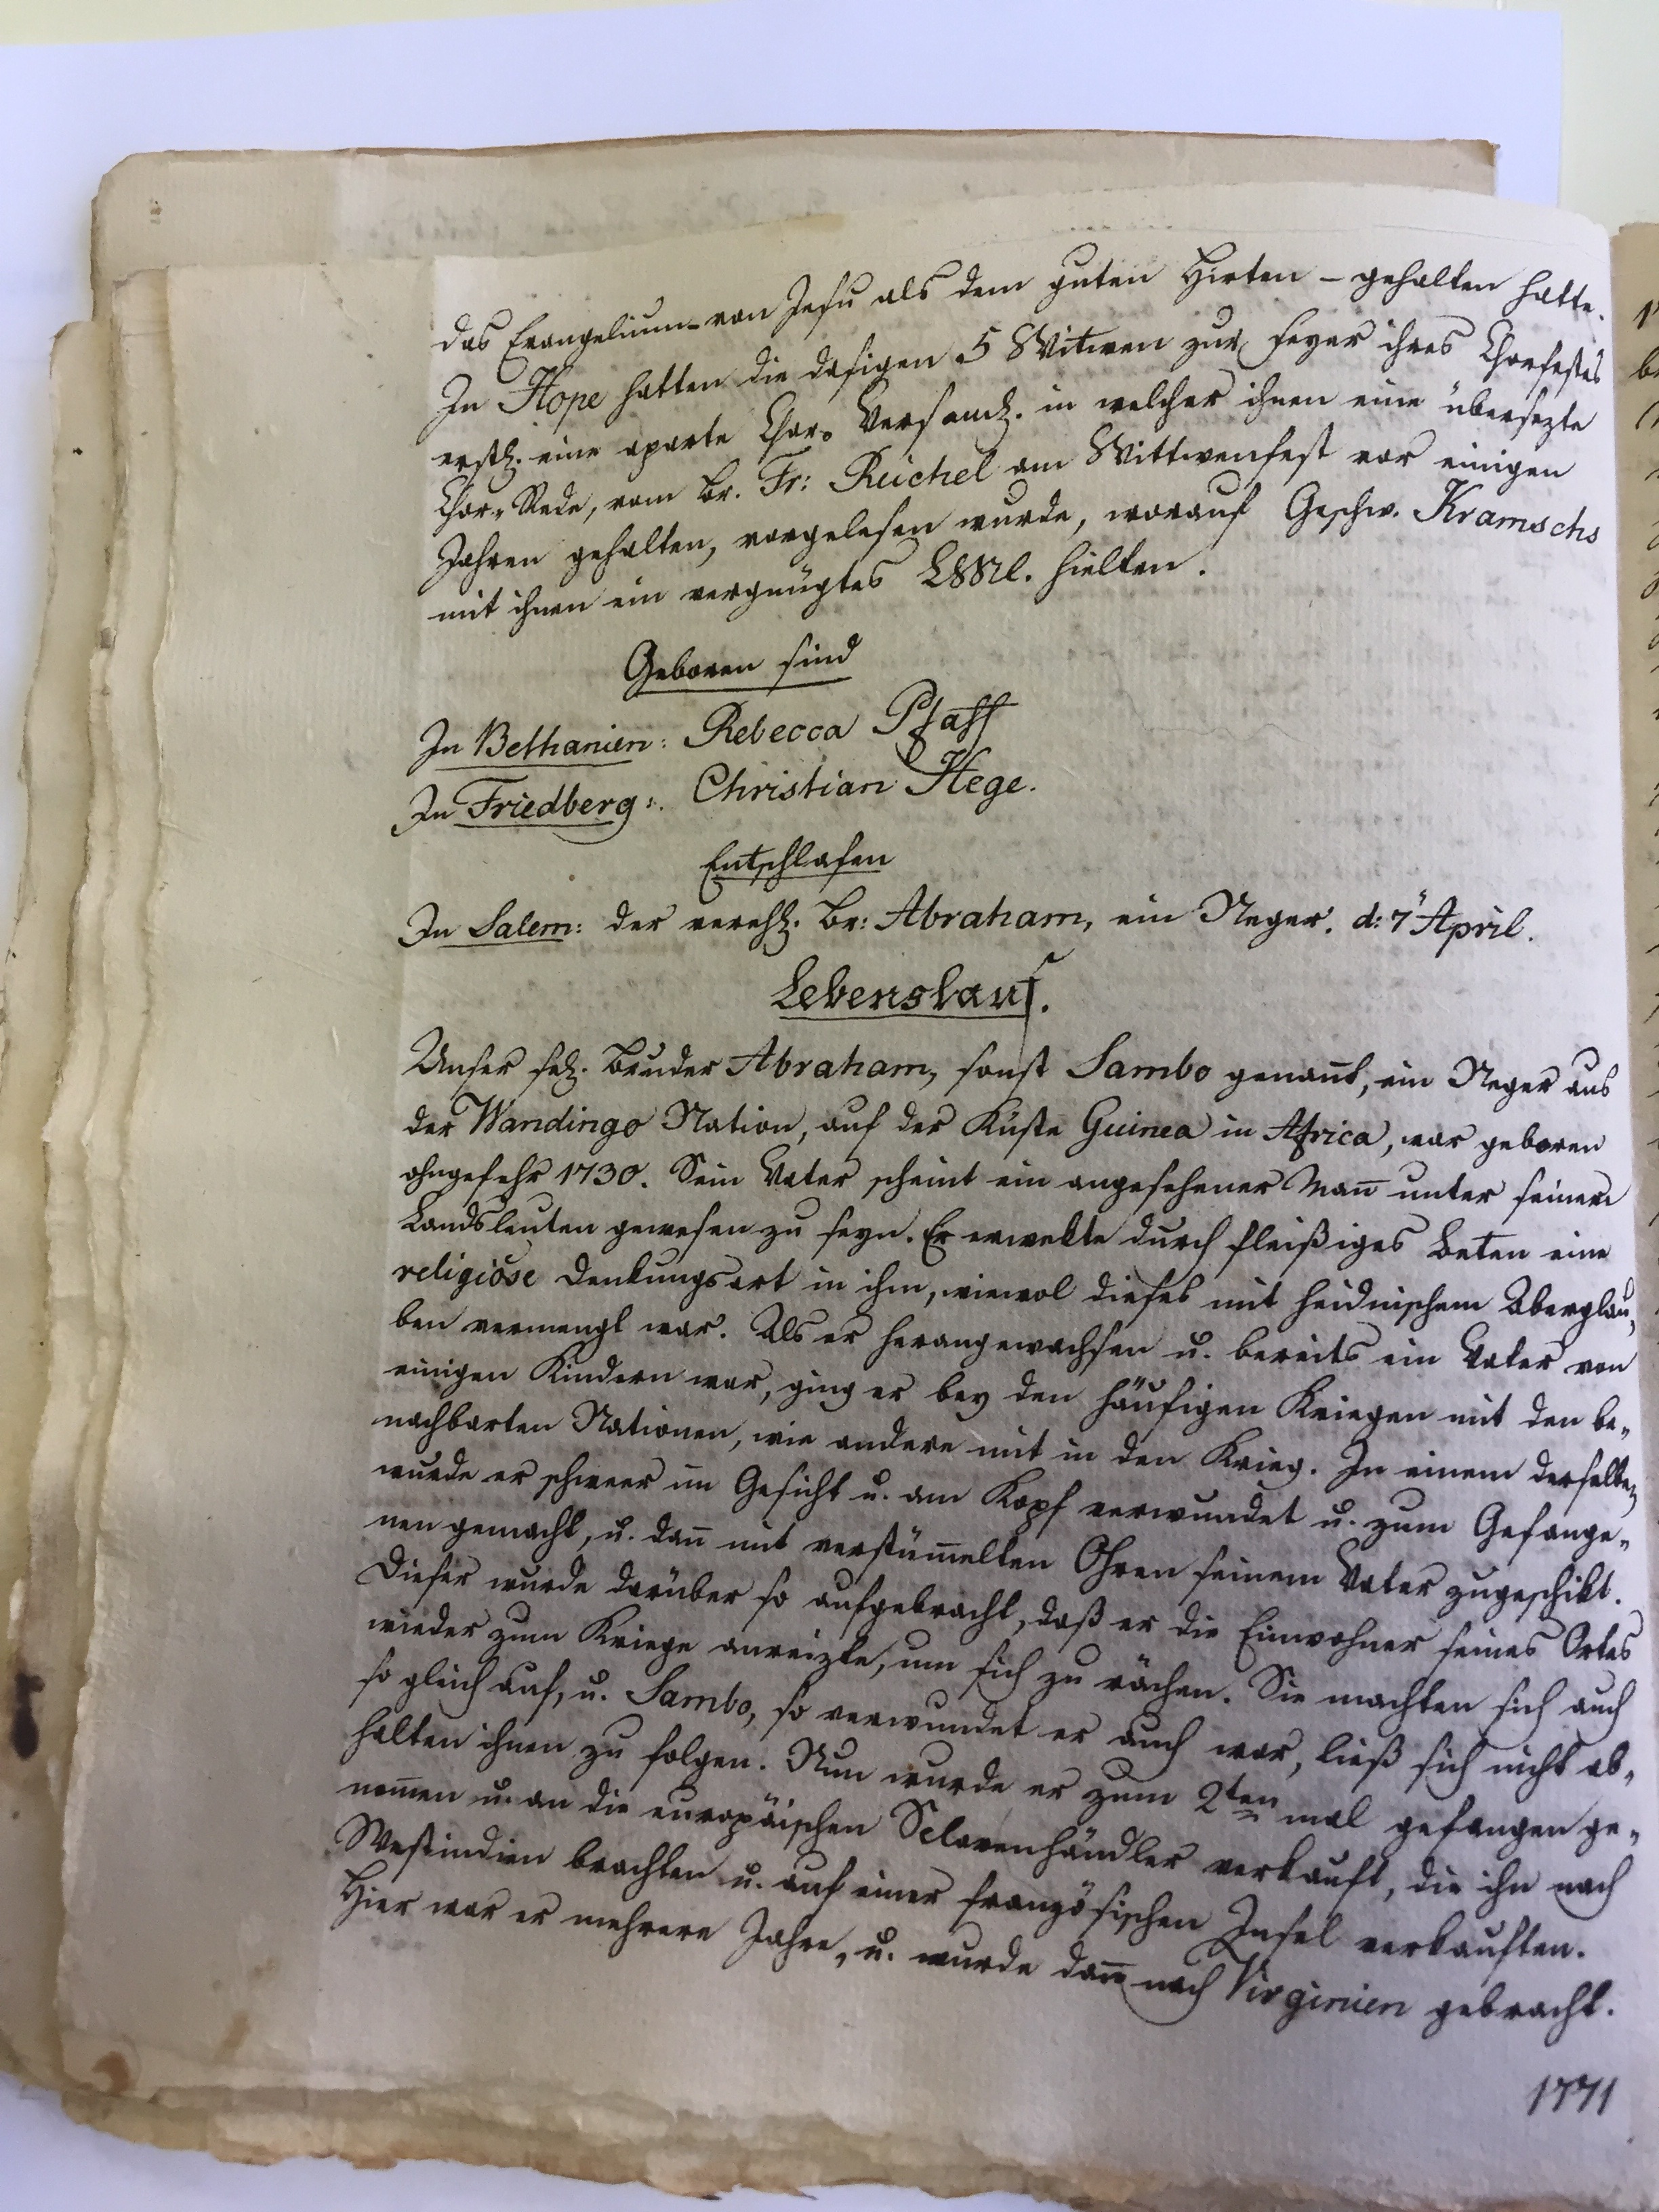 das Evangelium von Jesu als dem guten Hirten – gehalten hatte.
In Hope hatten die dasigen 5 Witwen zur Feyer ihres Chorfestes
erstl. eine aparte Chor-Versamlg. in welcher ihnen eine übersezte
Chor-Rede, vom Br. Fr: Reichel am Wittwenfest vor einigen
Jahren gehalten, vorgelesen wurde, worauf Geschw. Kramschs
mit ihnen ein vergnügtes hielten.
Geboren sind
In Bethanien: Rebecca Pfaff
In Friedberg: Christian Hege.
Entschlafen
In Salem: der verehl. Br: Abraham, ein Neger. d: 7 April.
Lebenslauf.
Unser sel. Bruder Abraham, sonst Sambo genañt, ein Neger aus
der Mandingo Nation, auf der Küste Guinea in Africa, war geboren
ohngefehr 1730. Sein Vater scheint ein angesehener Mañ unter seinen
Landsleuten gewesen zu seyn. Er erwekte durch fleißiges Beten eine
religiöse Denkungsart in ihm, wiewol dieses mit heidnischem Aberglau-
ben vermengt war. Als er herangewachsen u. bereits ein Vater von
einigen Kindern war, ging er bey den häufigen Kriegen mit den be-
nachbarten Nationen, wie andere mit in den Krieg. In einem derselben
wurde er schwer im Gesicht u. am Kopf verwundet u. zum Gefange-
nen gemacht, u. dañ mit verstüm̄elten Ohren seinem Vater zugeschikt.
Dieser wurde darüber so aufgebracht, daß er die Einwohner seines Ortes
wieder zum Kriege anreizte, um sich zu rächen. Sie machten sich auch
so gleich auf, u. Sambo, so verwundet er auch war, ließ sich nicht ab-
halten ihnen zu folgen. Nun wurde er zum 2ten mal gefangen ge-
nom̄en u. an die europäischen Sclavenhändler verkauft, die ihn nach
Westindien brachten u. auf einer französischen Insel verkauften.
Hier war er mehrere Jahre, u. wurde dañ nach Virginien gebracht.
1771